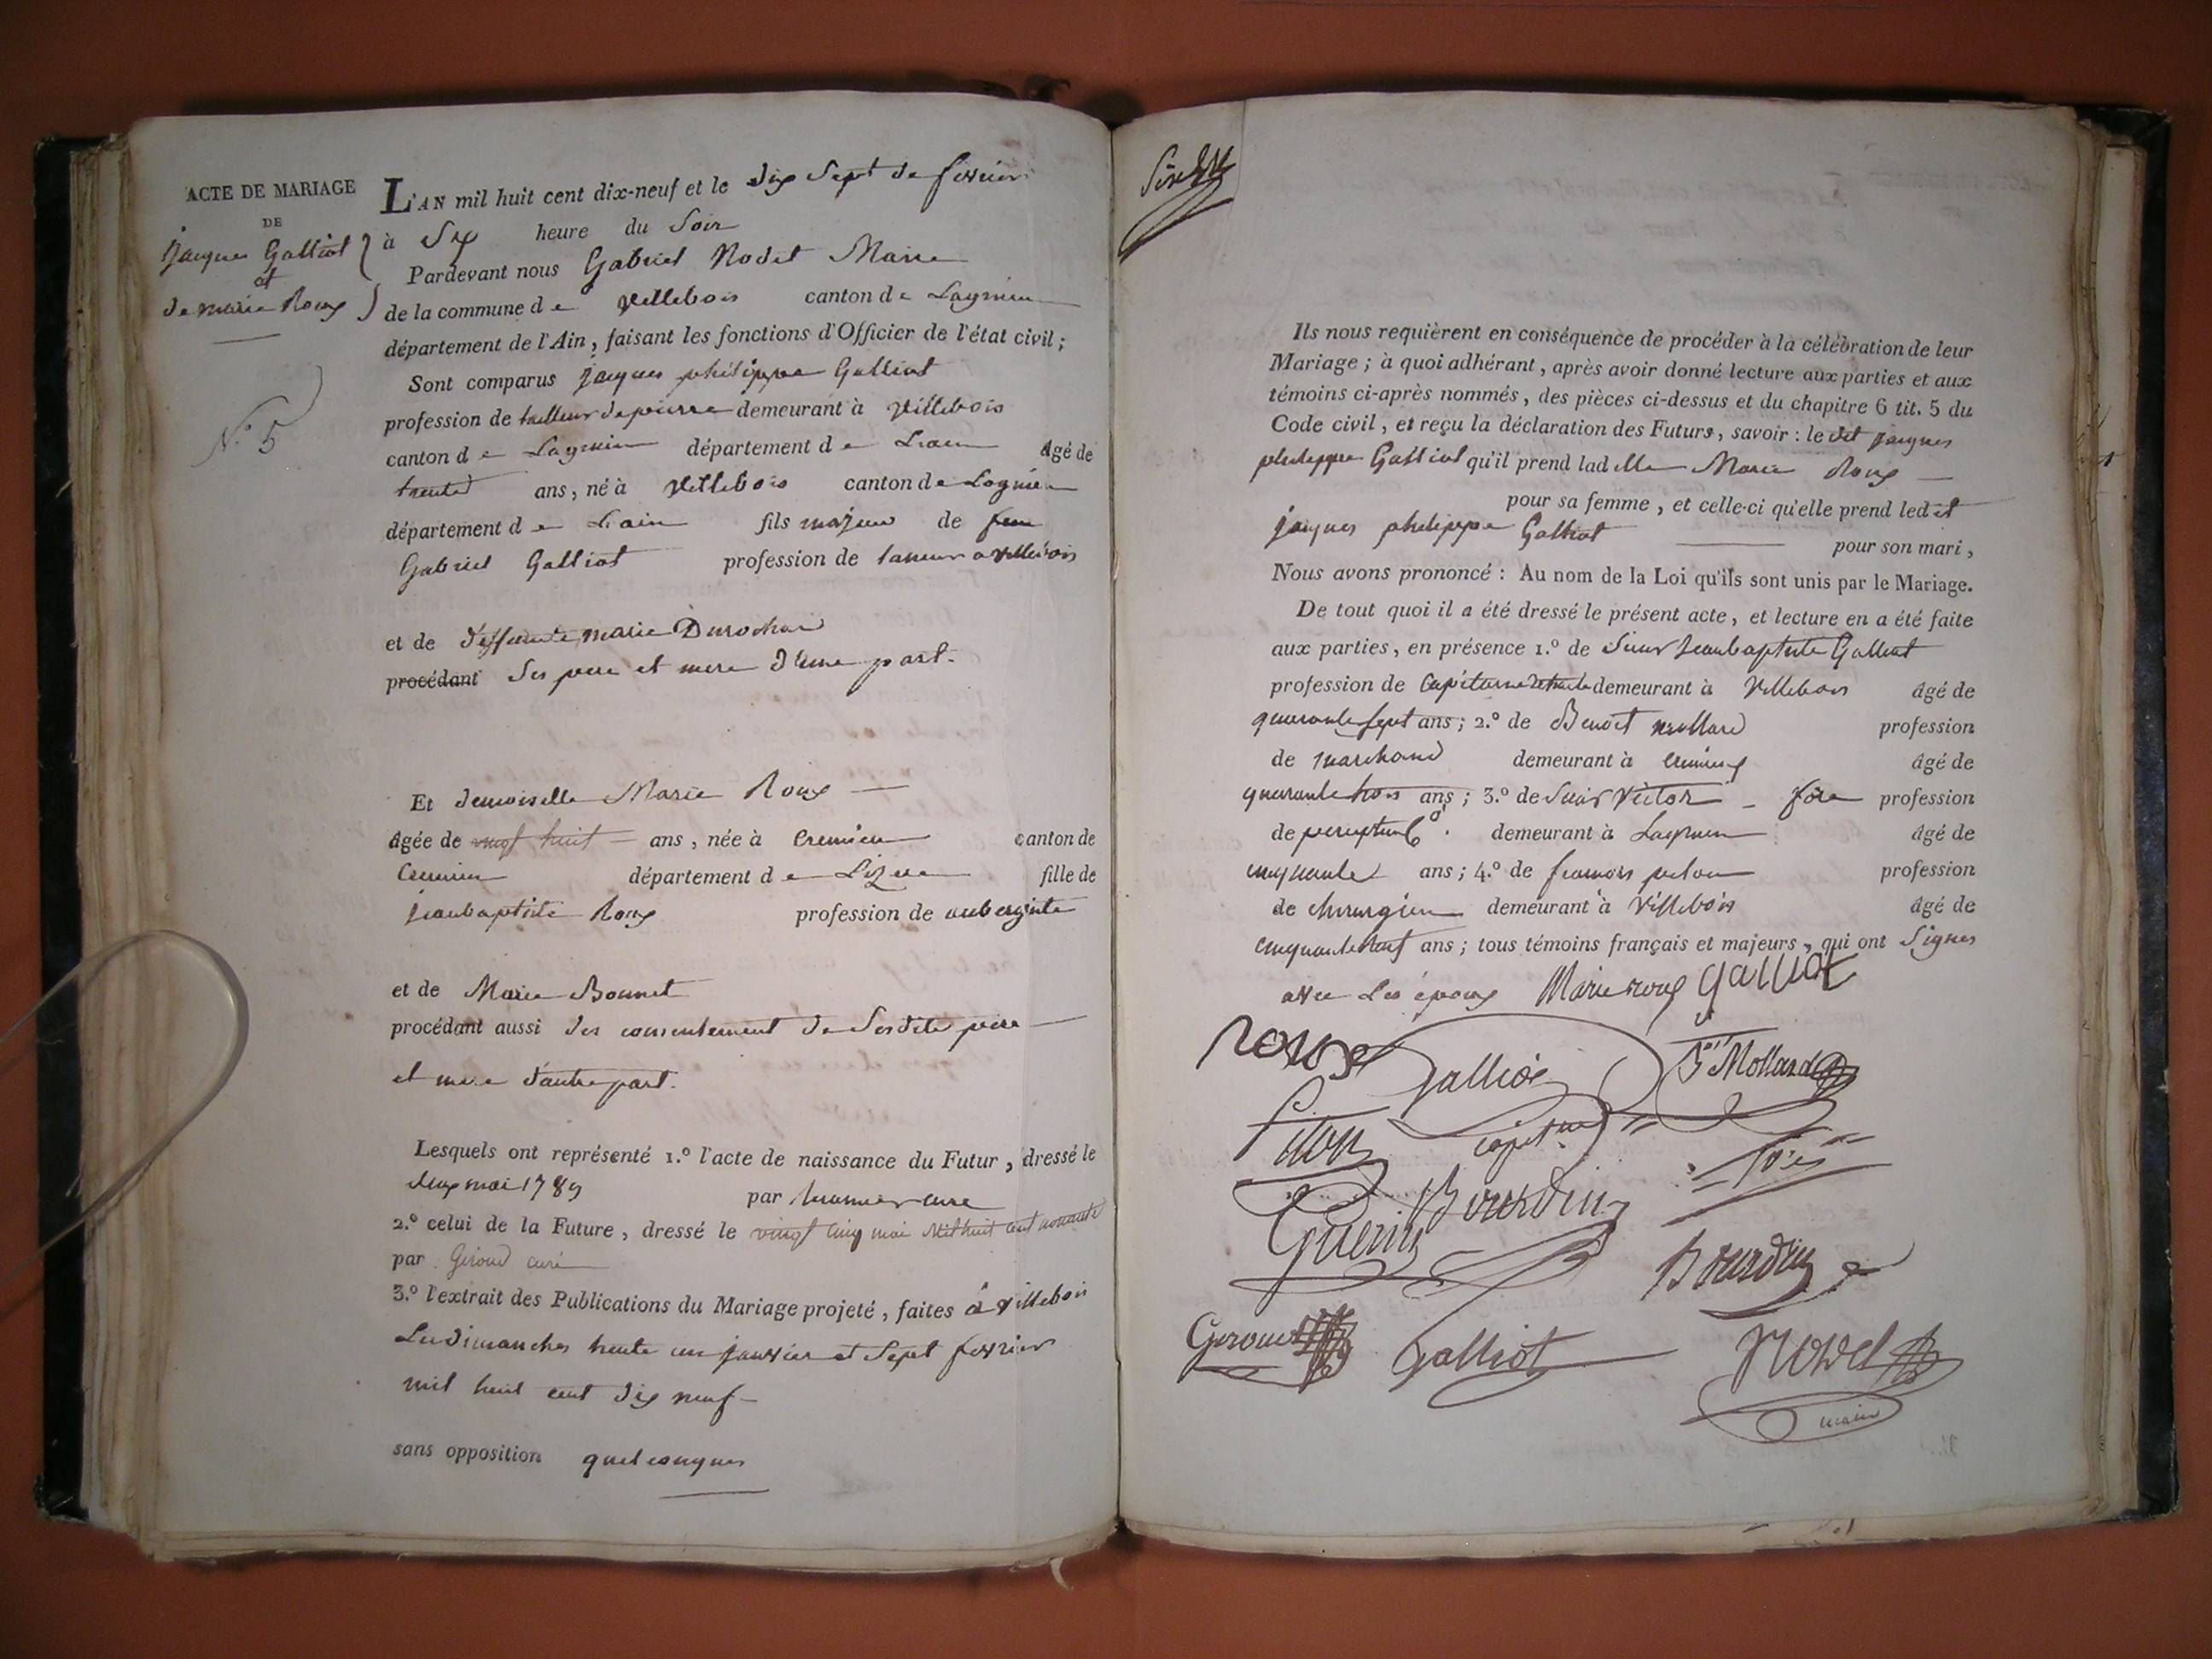 ACTE DE MARIAGE
DE
jacques Galliot
et
de marie Roux
N.° 5
L'AN mil huit cent dix-neuf et le dix Sept de fevrier
à Six heure du Soir
Pardevant nous Gabriel Nodet Maire
de la commune de villebois canton de Lagnieu
département de l'Ain, faisant les fonctions d'Officier de l'état civil;
Sont comparus jacques philippe Galliot
profession de tailleur de pierre demeurant à villebois
canton de Lagnieu département de Lain âgé de
trente ans, né à villebois canton de Lagnieu
département de Lain fils majeur de feu
Gabriel Galliot profession de taneur a villebois
et de deffunte marie Durochat
procédant Ses pere et mere d'une part.
Et demoiselle Marie Roux
âgée de vingt huit ans, née à Cremieu canton de
Cremieu département de Lizere fille de
jeanbaptiste Roux profession de aubergiste
et de Marie Bonnet
procédant aussi du consentement de Sesdits pere
et mere d'autre part.
Lesquels ont représenté 1.° l'acte de naissance du Futur, dressé le
deux mai 1789 par curé
2.° celui de la Future, dressé le vingt cinq mai Mil huit cent nonante
par Giroud curé
3.° l'extrait des Publications du Mariage projeté, faites à villebois
Les dimanches trente un janvier et Sept fevrier
mil huit cent dix neuf
sans opposition quelconques
Ils nous requièrent en conséquence de procéder à la célébration de leur
Mariage; à quoi adhérant, après avoir donné lecture aux parties et aux
témoins ci-après nommés, des pièces ci-dessus et du chapitre 6 tit. 5 du
Code civil, et reçu la déclaration des Futurs, savoir: le dit jacques
philippe Galliot qu'il prend lad elle Marie Roux
pour sa femme, et celle-ci qu'elle prend ledit
jacques philippe Galliot pour son mari,
Nous avons prononcé: Au nom de la Loi qu'ils sont unis par le Mariage.
De tout quoi il a été dressé le présent acte, et lecture en a été faite
aux parties, en présence 1.° de Sieur Jeanbaptiste Galliot
profession de Capitaine retraité demeurant à Villebois âgé de
quarante Sept ans; 2.° de Benoit Mollard profession
de marchand demeurant à Cremieu âgé de
quarante trois ans; 3.° de Sieur Victor profession
de percepteur demeurant à Lagnieu âgé de
cinquante ans; 4.° de francois piton profession
de chirurgien demeurant à Villebois âgé de
ans; tous témoins français et majeurs, qui ont Signés
avec Les époux Marie roux Galliot
roux Galliot Bt Mollard
Piton capitne
Guerin Bourdin
Bourdin
Giroud Galliot Nodet
maire